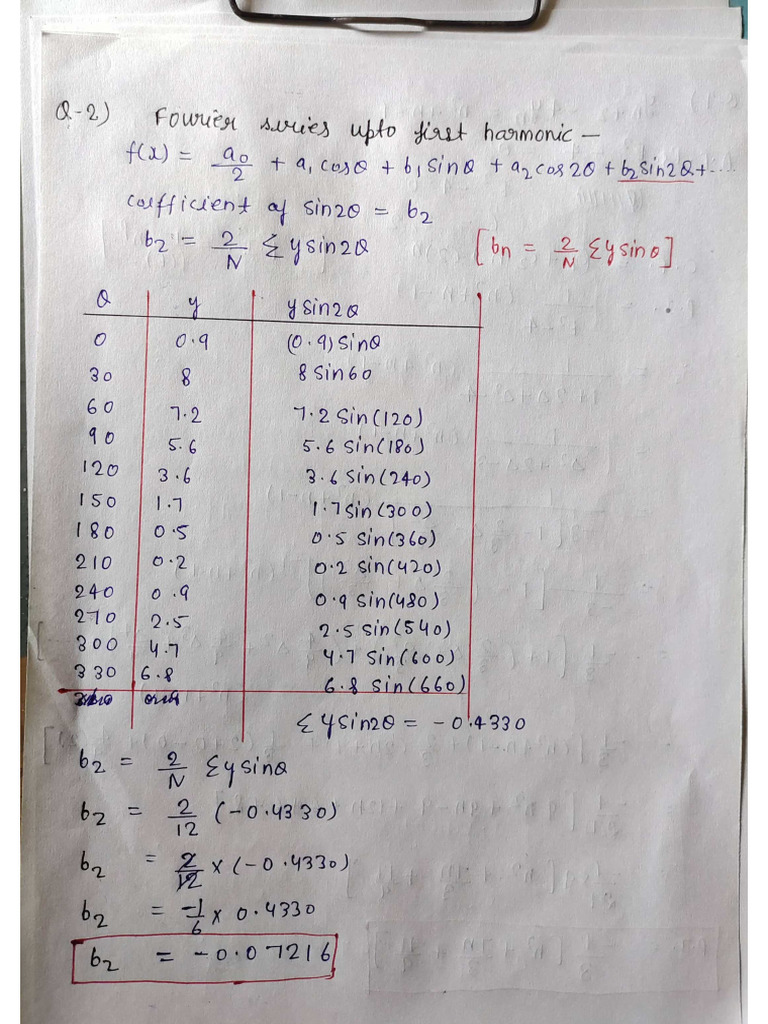 Q-2) Fourier series upto first harmonic —
f(x) = a0/2 + a1 cosθ + b1 sinθ + a2 cos2θ + b2 sin2θ + ...
coefficient of sin2θ = b2
b2 = 2/N Σ y sin2θ [bn = 2/N Σ y sinθ]
θ y y sin2θ
0 0.9 (0.9) sinθ
30 8 8 sin60
60 7.2 7.2 sin(120)
90 5.6 5.6 sin(180)
120 3.6 3.6 sin(240)
150 1.7 1.7 sin(300)
180 0.5 0.5 sin(360)
210 0.2 0.2 sin(420)
240 0.9 0.9 sin(480)
270 2.5 2.5 sin(540)
300 4.7 4.7 sin(600)
330 6.8 6.8 sin(660)
Σ y sin2θ = -0.4330
b2 = 2/N Σ y sinθ
b2 = 2/12 (-0.4330)
b2 = 2/12 x (-0.4330)
b2 = -1/6 x 0.4330
b2 = -0.07216